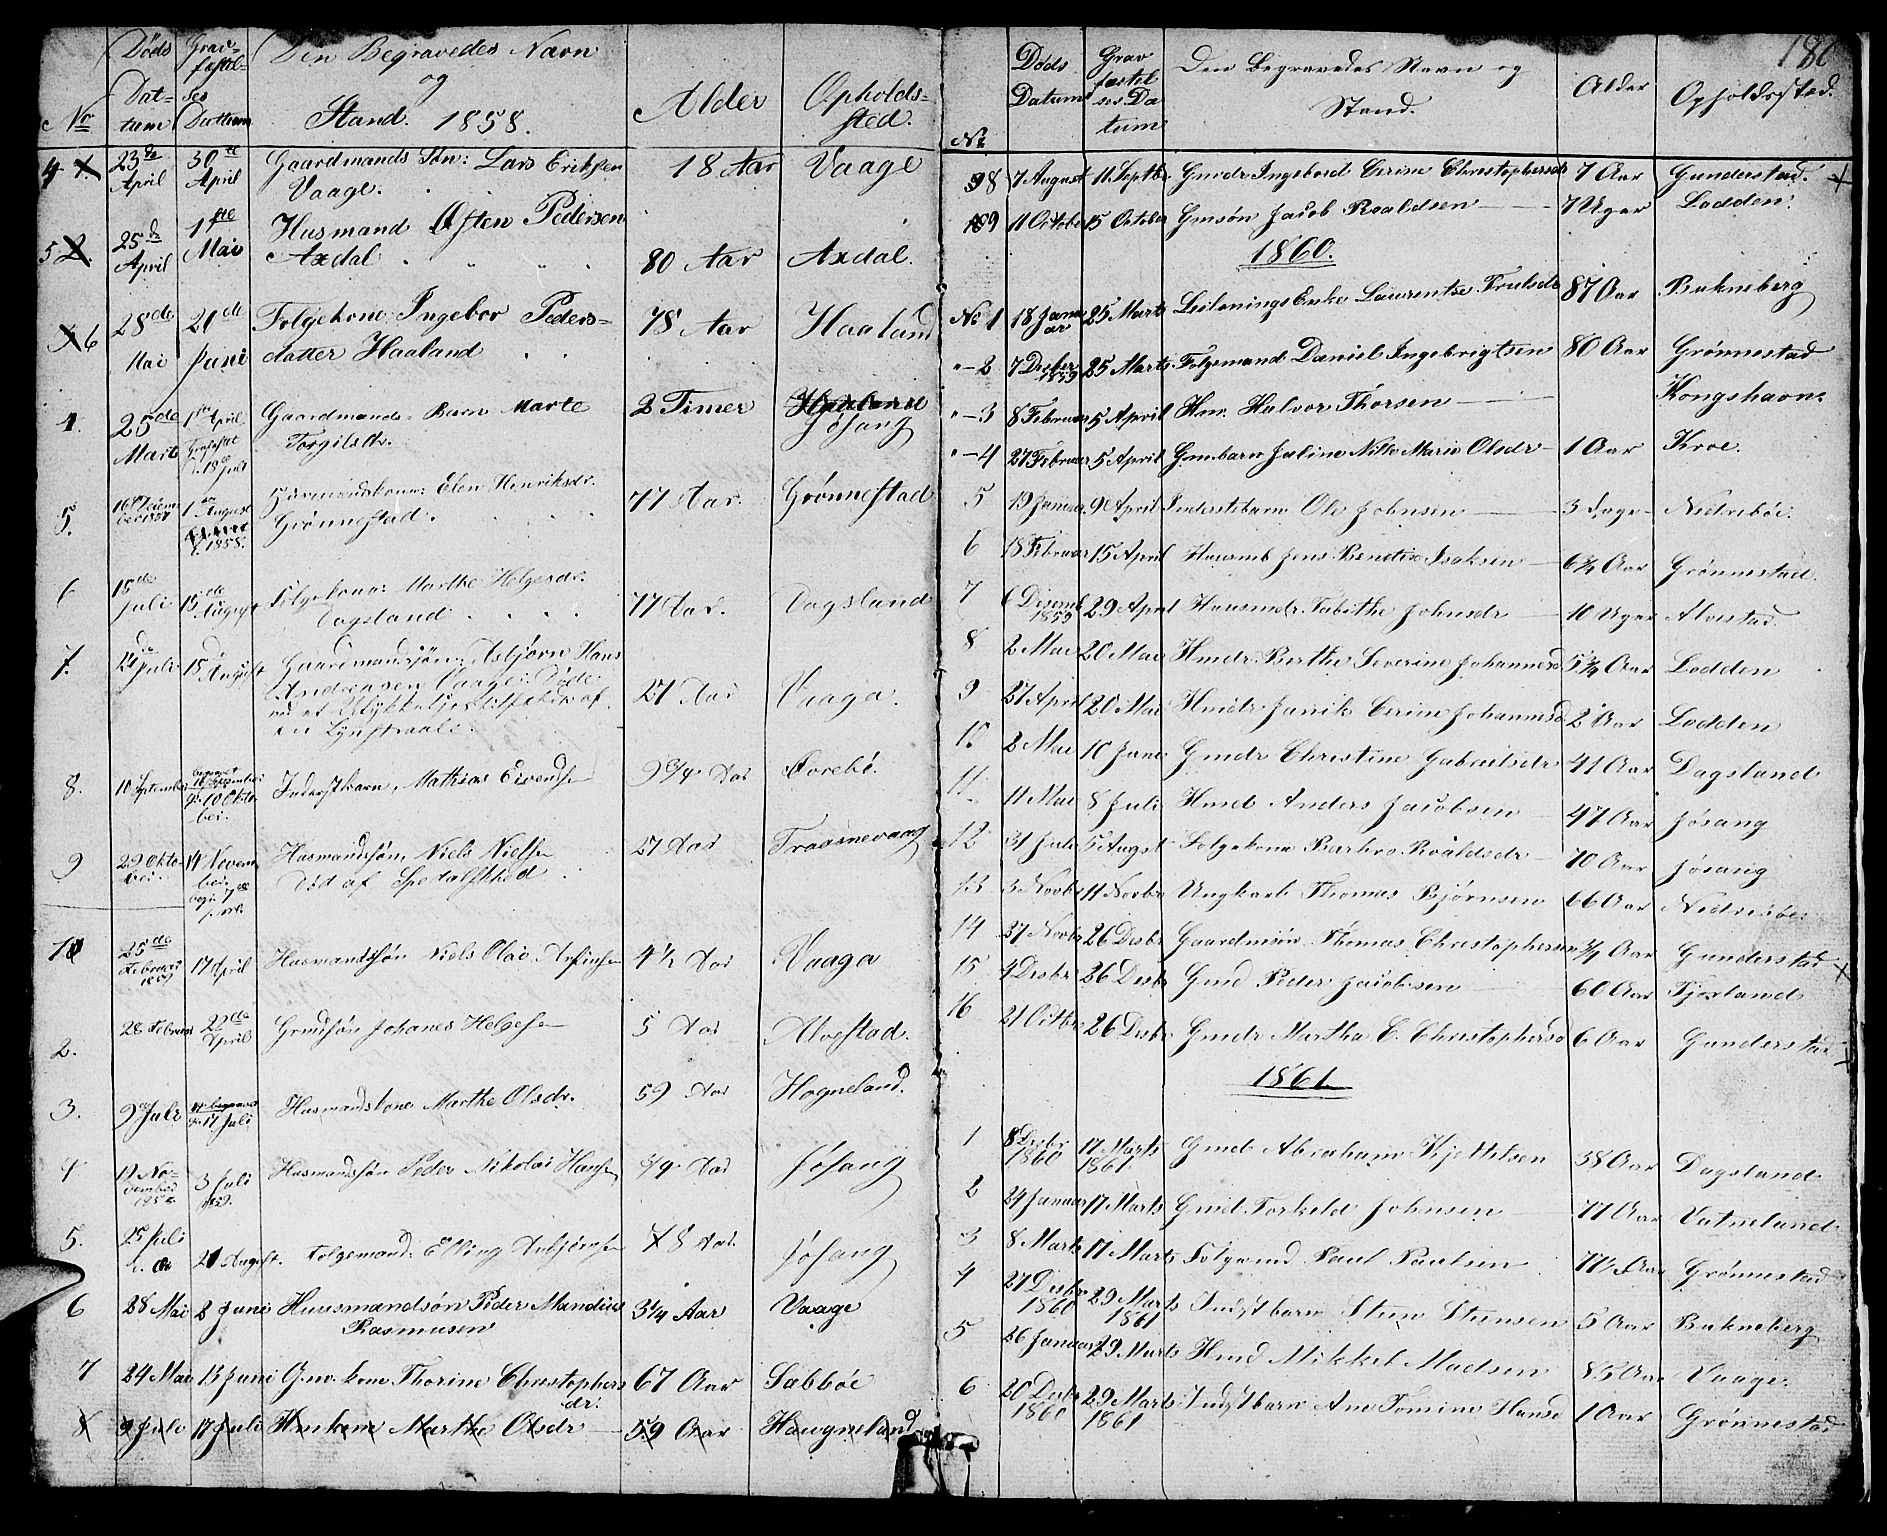 Nr Døds Datum Gravfæstelses Dattum Den Begravedes Navn og Stand. 1858. Alder Opholdssted.
4 23de April 30te April Gaardmands Søn: Lars Eriksen Vaage. 18 Aar Vaage
5 25de April 1ste Mai Husmand Østen Pedersen Axdal 80 Aar Axdal.
6 28de Mai 21de Juni Folgekone Ingebor Pedersdatter Haaland 78 Aar Haaland
4. 25de Marts 1ste April Gaardmands Barn Marte Torgilsdtr. 2 Timer Jøsang
5. 1ste August 1858. Elen Henriksdr. Grønnestad. 77 Aar. Grønnestad
6 15de Juli 15de August Folgekone: Marthe Helgesdr. Dagsland 77 Aar. Dagsland
7. Juli 15 August Gaardmandssøn: Asbjørn Hans Andreasen Vaage: Døde ved et Ulykkestilfælde af en Lynstraale. 27 Aar Vaaga
8. 10 September 10 Oktober. Inderstbarn, Mathias Eivends 9 3/4 Aar Torebø.
9 29 Oktober. 14 November Husmandssøn, Niels Niels Død af Spedalskhed 27 Aar Traasnevaag
1 25de Februar 17 April Husmandssøn Niels Olai 4 1/2 Aar Vaaga
2. 28 Februar 22de April Grmdsøn Johanes Helges 5 Aar Alvestad.
3. 9 Juli 17 Juli Husmandskone Marthe Olsdr. 59 Aar Hogneland.
4 November 3 Juli 1859. Husmandssøn Peder Nikolai Hans 3/4 Aar Jøsang
5. 25 Juli 21 August. Folgemand: Elling Asbjørns 78 Aar. Jøsang
6 28 Mai 2 Juni Huusmandsøn Peder Mandius Rasmusen 3 1/4 Aar Vaage
7 24 Mai 13 Juni Gm.kone Thorine Christophersdr: 67 Aar Sabbøe
8 9 Juli 17 Juli Hmkone Marthe Olsdr 59 Aar Haugneland
180
Nr Døds Datum Gravfæstelses Datum Den Begravedes Navn og Stand. Alder Opholdssted.
8 7 August 11 Septbr Gmdr Ingebord Serine Christophersdr 7 Aar Gunderstad.
9 11 Octobr 15 October Gmsøn Jacob Roaldsen 7 Uger Lodden.
1860.
No 1 18 Januar 25 Marts Enke Laurentse Trulsdr 87 Aar Bukneberg
"-2 7 Decber 1859 25 Marts Folgemand Daniel Ingebrigtsen 80 Aar Grønnestad
"-3 8 Februar 5 April Hm. Halvor Thorsen Kongshavn.
"-4 27 Februar 5 April Gmbarn Juline Nille Marie Olsdr 1 Aar Kroe.
5 19 Januar 9 April Inderstebarn Ole Johnsen 3 Dage Nedrebøe.
6 18 Februar 15 April Jens Bendix Isaksen 6 3/4 Aar Grønnestad.
7 6 Desemb 1859 29 April Tabithe Johnsdr 10 Uger Alvestad.
8 2 Mai 20 Mai Hmdr. Berthe Severine Johannesd 5 3/4 Aar Lodden
9 27 April 20 Mai Hmdr Janik Serine Johannesd 2 Aar Lodden
10 2 Mai 10 June Gmdr Christine Gabrielsdr 41 Aar Dagsland
11. 11 Mai 8 Juli Hmd Anders Jacobsen 47 Aar Jøsang
12 31 Juli 5 Augst Folgekone Barbro Roaldsdr 70 Aar Jøsang
13 3 Novbr 11 Novbr Ungkarl Thomas Bjørnsen 66 Aar Nedrebøe
14 27 Novbr 26 Decbr Gaardmsøn Thomas Christophersen 3/4 Aar Gunderstad
15 4 Decbr 26 Decbr Gmd Peder Jacobsen 60 Aar Fjoxland
16 21 Octbr 26 Decbr Gmdr Martha C. Christophersd 6 Aar Gunderstad
1861
1 8 Decbr 1860 17 Marts 1861 Gmd Abraham Kjettilsen 38 Aar Dagsland
2 24 Januar 17 Marts Gmd Torkild Johnsen 77 Aar Vatneland
3 8 Marts 17 Marts Folgemd Paul Paulsen 77 1/2 Aar Grønnestad
4 27 Decbr 1860 29 Marts 1861 Indstbarn Steen Steensen 5 Aar Bukneberg
5 26 Januar 29 Marts Hmd Mikkel Madsen 85 Aar Vaage.
6 20 Decbr 1860 29 Marts 1861 Indstbarn Ane Tomine Hansd 1 Aar Grønnestad